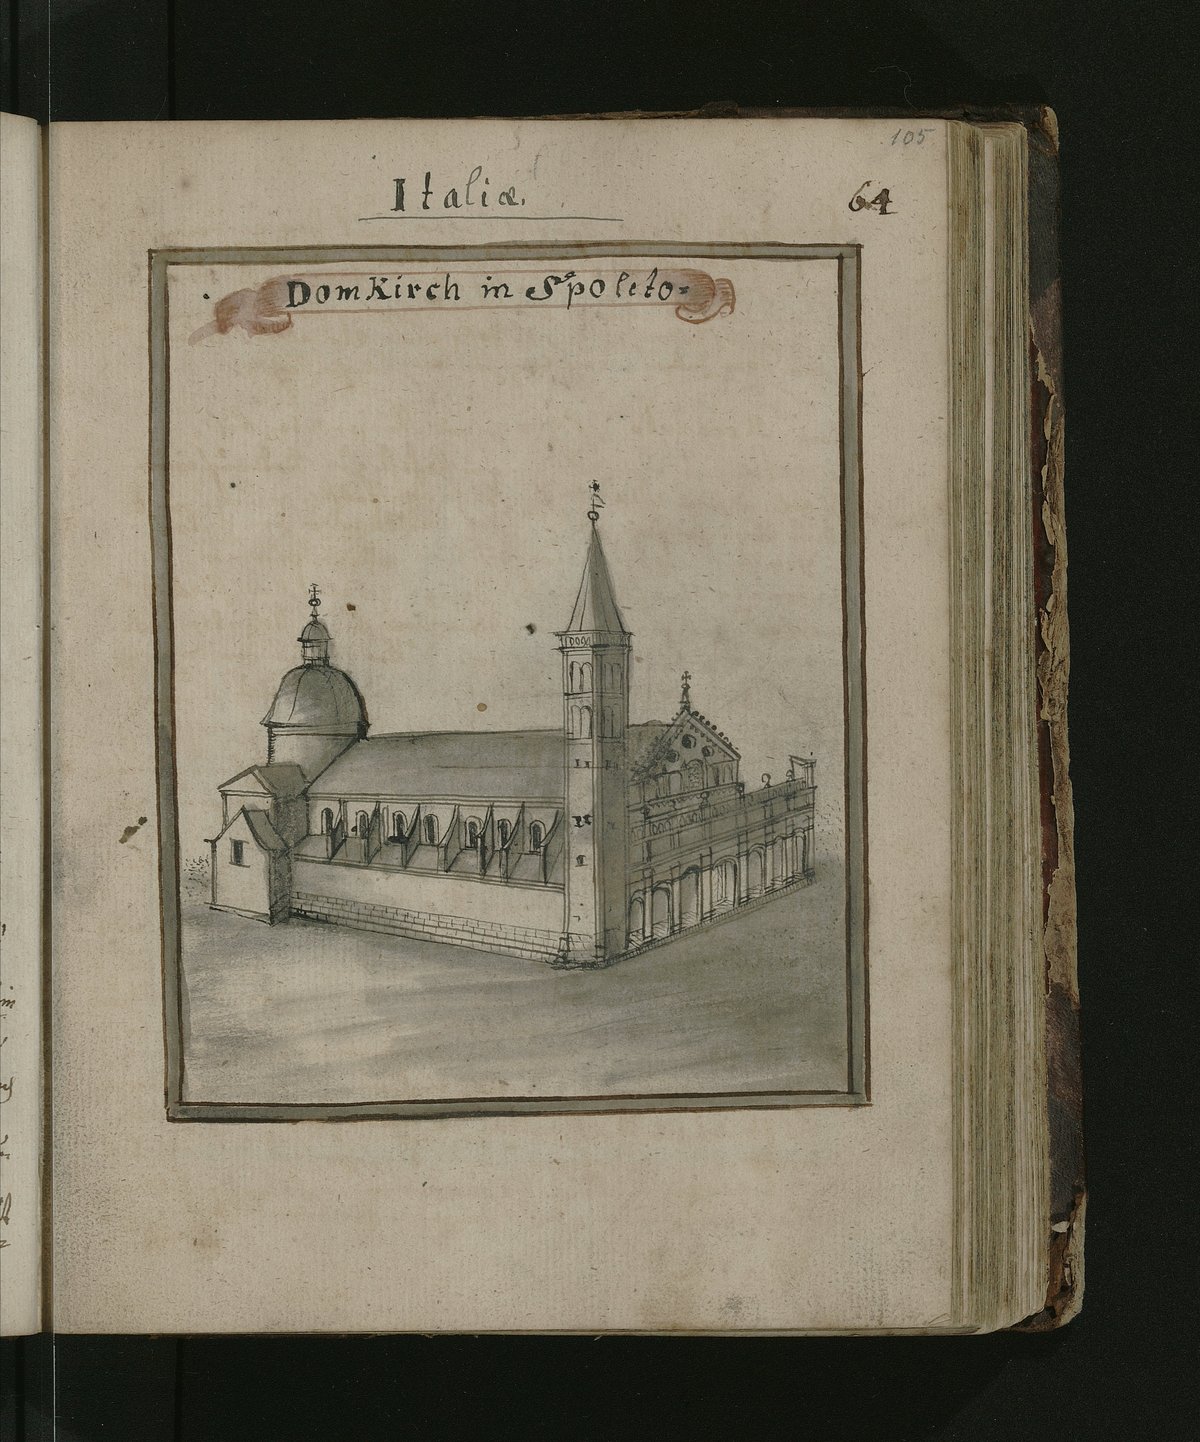 105
Italiæ.
64
Dom Kirch in Spoleto